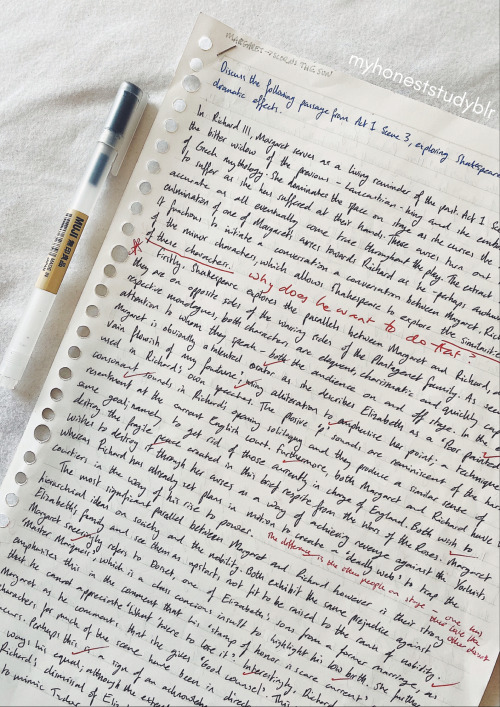 MARGARET
myhoneststudyblr
Discuss the following passage from Act I Scene 3, exploring Shakespeare
dramatic effects.
In Richard III, Margaret serves as a living reminder of the past. Act I Sc
the bitter widow of the previous - Lancastrian - king and the
of Greek mythology. She dominates the space on stage as she curses the
to suffer as she has suffered at their hands. These curses turn out
accurate as all eventually come true throughout the play. The extract
culmination of one of Margaret's curses towards Richard as he, perhaps
it functions to initiate a conversation between Margaret, Rich
of the minor characters, which allows Shakespeare to explore the similarities
of these characters. why does he want to do that?
Firstly, Shakespeare explores the parallels between Margaret and Richard,
they are on opposite sides of the warring sides of the Plantagenet family. As
respective monologues, both characters are eloquent, charismatic and quickly cap
attention to whom they speak - both the audience on and off stage. In the
Margaret is obviously a talented orator as she describes Elizabeth as a 'Poor painted
vain flourish of my fortune', using alliteration to emphasise her point; a technique
used in Richard's own speeches. The plosive 'p' sounds are reminiscent of the
consonant sounds in Richard's opening soliloquy and they produce a similar sense of
resentment at the current English court. Furthermore, both Margaret and Richard have
same goal; namely to get rid of those currently in charge of England. Both wish to
destroy the fragile peace created in this brief respite from the Wars of the Roses. Margaret
wishes to destroy it through her curses as a way of achieving revenge against the Yorkists,
whereas Richard has already set plans in motion to create a 'deadly web' to trap the
courtiers in the way of his rise to power. The difference is the other people on stage - one
The most significant parallel between Margaret and Richard however is their strong
hierarchical ideas on society and the nobility. Both exhibit the same prejudice against
Elizabeth's family and see them as upstarts, not fit to be raised to the rank of nobility.
Margaret sneeringly refers to Dorset, one of Elizabeth's sons from a former marriage, as
'Master Marquess', which is a class conscious insult to highlight his low birth. She further
emphasises this in the comment that his 'stamp of honour is scarce current'
that he cannot appreciate 'what 'twere to lose it'. Interestingly, Richard
Margaret as he comments that she gives 'Good counsel'. This
characters for much of the scene have been in direct
Perhaps this is a sign of an acknow
ways his equal, although the
Richard's dismissal of Eliz
to mimic Tudor
MUJI 無印良品